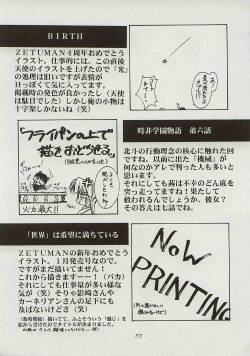 BIRTH
ZETUMAN4周年おめでとう
イラスト。仕事的には、この直後
天使のイラストを上げたので「光」
の処理は旧いですが表情が
Hっぽくて気に入ってます。
掲載時の発色が良かったし(天使
は駄目でした)しかし俺の小物は
十字架しかないね(笑)
フライパンの上で
火力最大!!
時非学園物語 第六話
北斗の行動理念の核心に触れた回
ですね。以前に出た「機械」が
何なのかアレで判った人も多いと
思います。
それにしても茜は不幸のどん底を
突っ走ってますね…果たして
救われるんでしょうか、彼女?
その答えは七話でね。
「世界」は希望に満ちている
ZETUMANの新年おめでとう
イラスト。1月発売号なので。
ですがまだ描いてません!
これから描きます…!(バカ)
それにしても仕事量が多い様
な気が(笑)そりゃ影崎さんや
カーネリアンさんの足下にも
及ばないけどさ(笑)
NOW
PRINTING
57